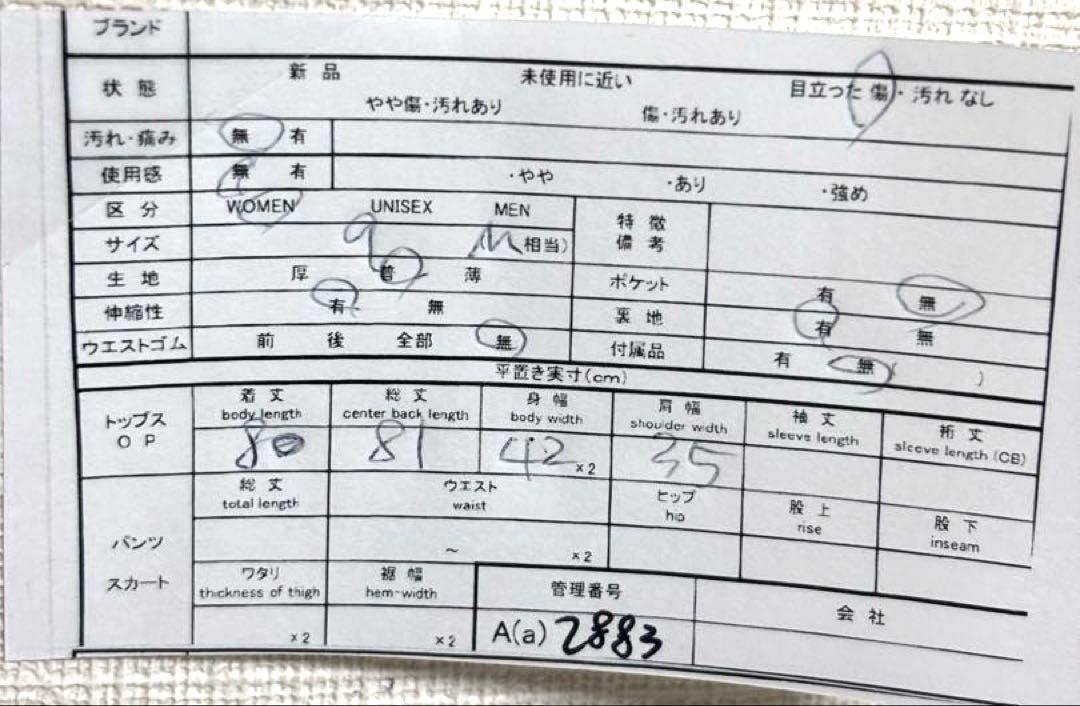 ブランド
状態 新品 未使用に近い 目立った傷・汚れなし
やや傷・汚れあり 傷・汚れあり
汚れ・痛み 無 有
使用感 無 有 ・やや ・あり ・強め
区分 WOMEN UNISEX MEN 特徴
サイズ 9 M 相当) 備考
生地 厚 普 薄 ポケット 有 無
伸縮性 有 無 裏地 有 無
ウエストゴム 前 後 全部 無 付属品 有 無 ( )
平置き実寸(cm)
トップス 着丈 総丈 身幅 肩幅 袖丈 裄丈
OP body length center back length body width shoulder width sleeve length sleeve length (CB)
80 81 42 x2 35
総丈 ウエスト ヒップ 股上 股下
total length waist hip rise inseam
パンツ ～ x2
スカート ワタリ 裾幅 管理番号 会社
thickness of thigh hem-width
x2 x2 A(a) 2883